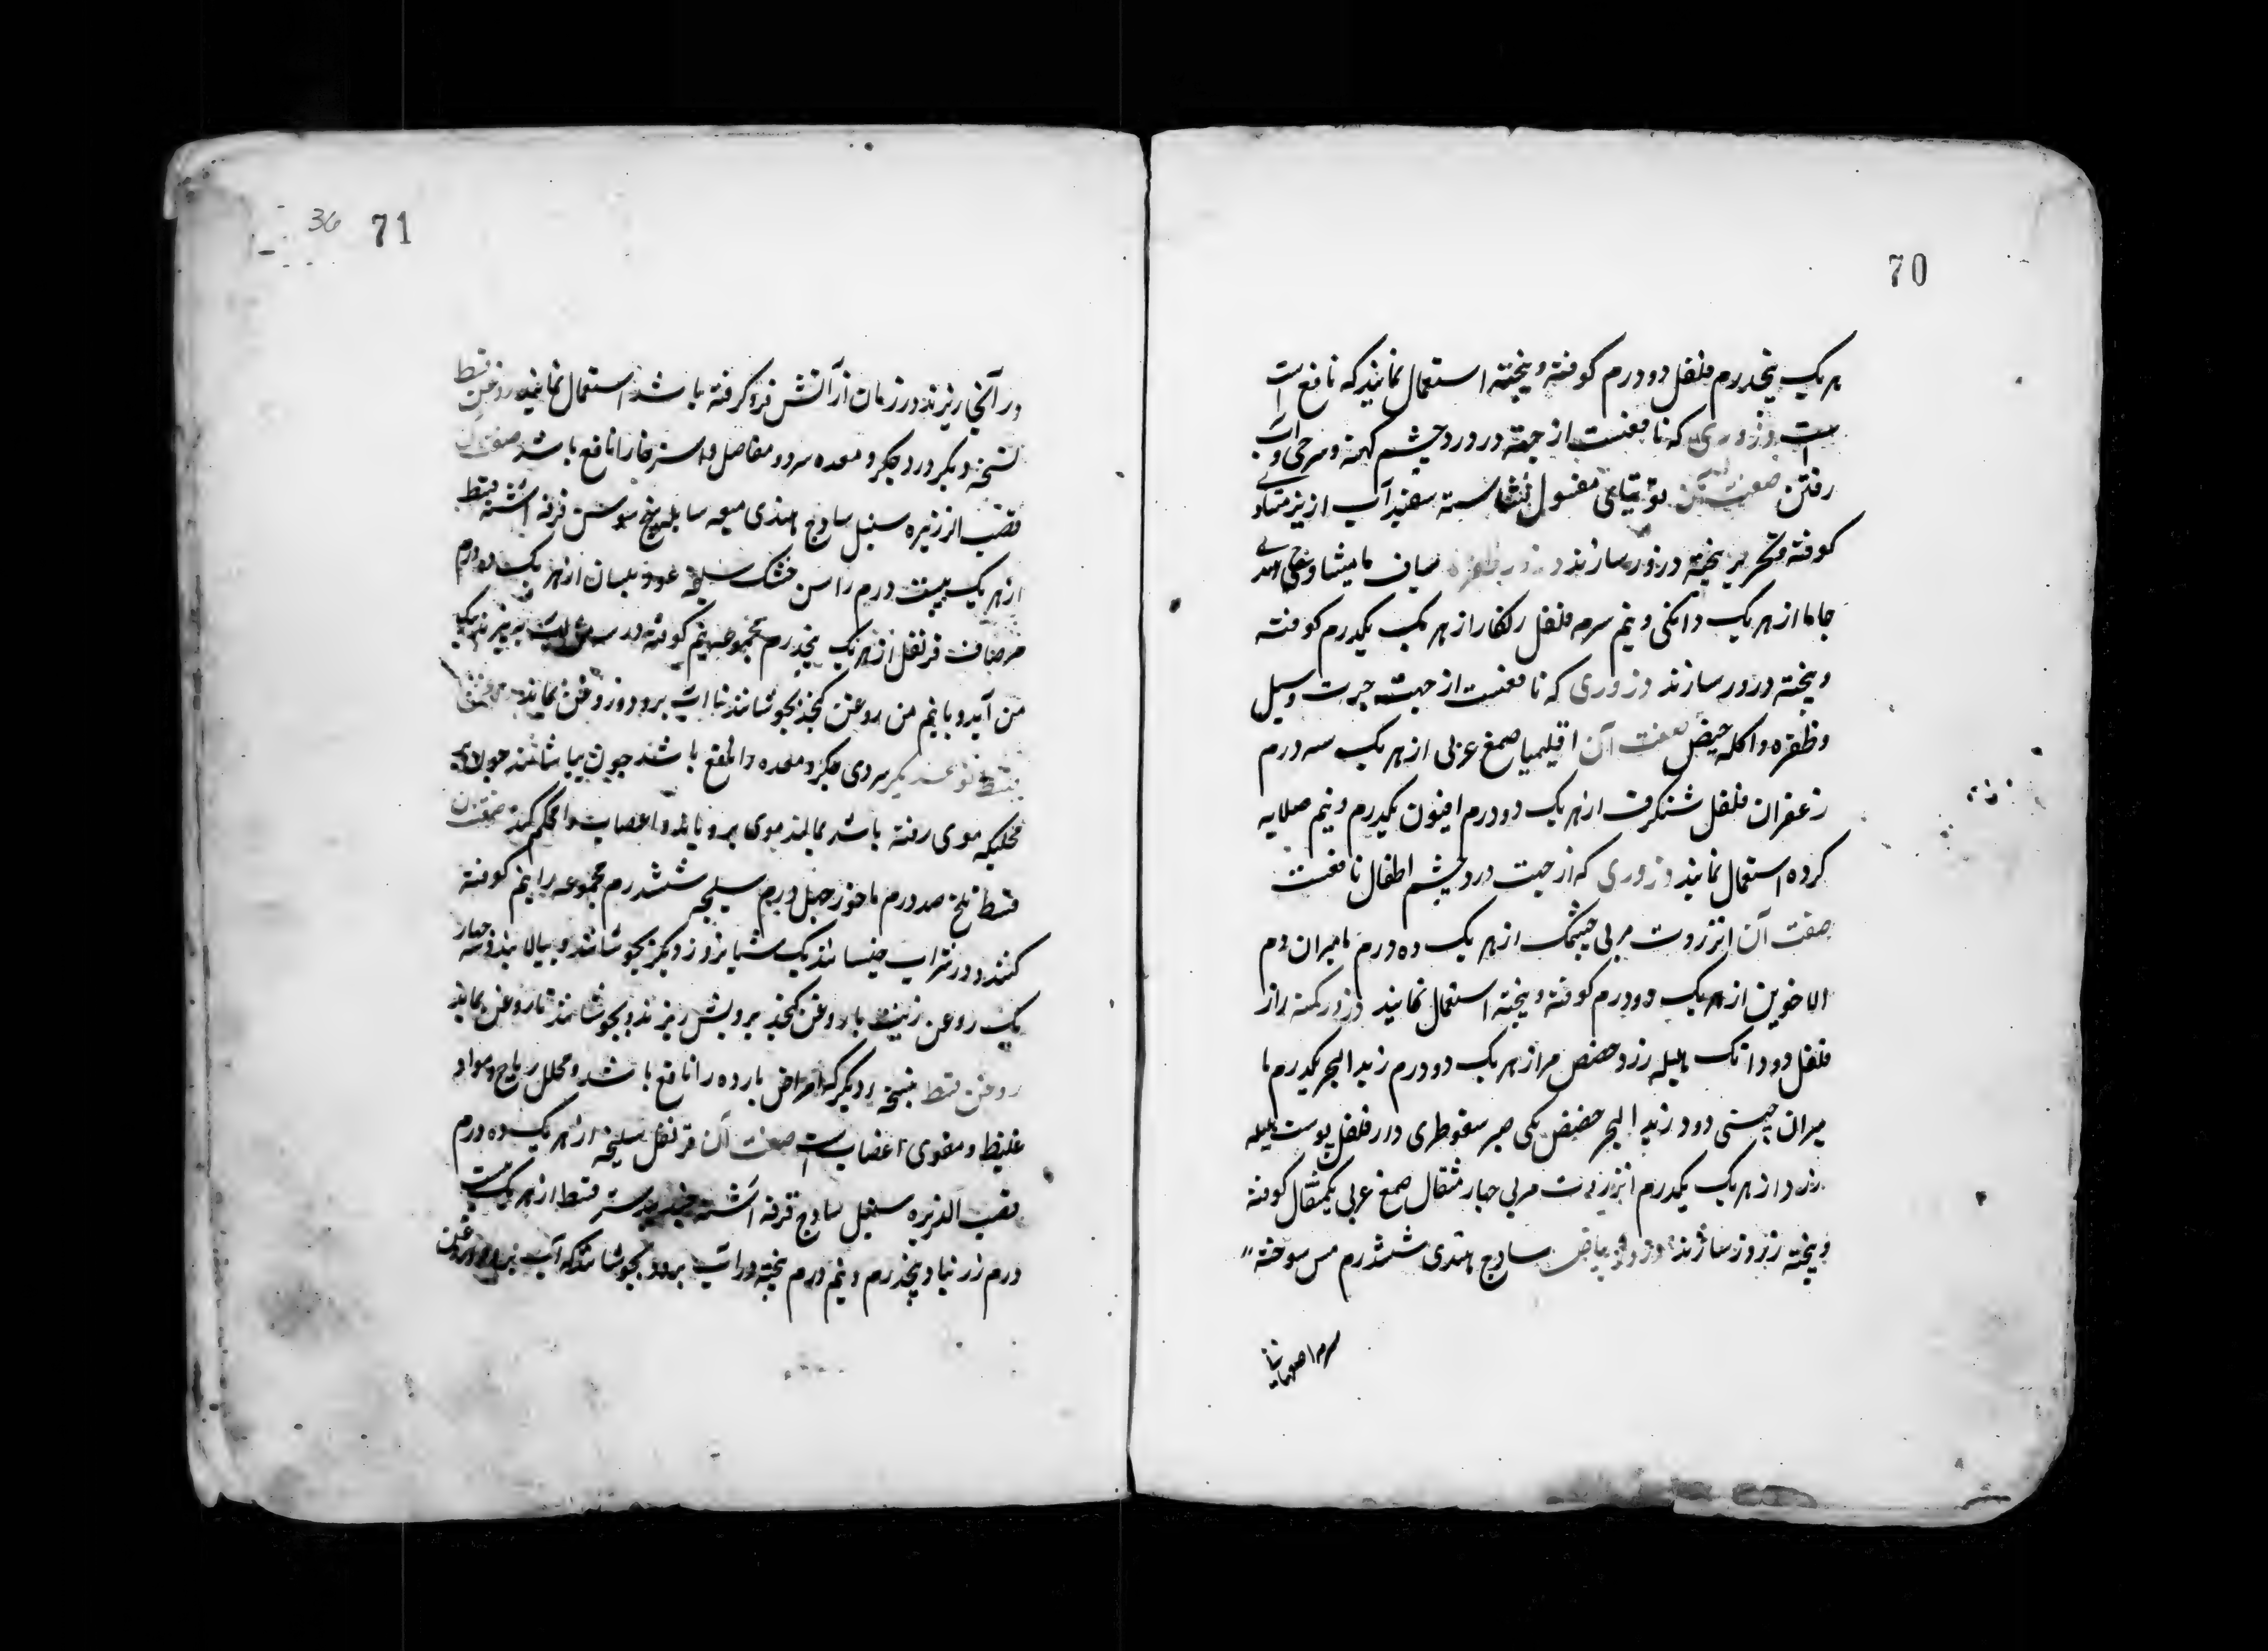 70
هریک پنجدرم فلفل دو درم کوفته و پیخته استعمال نمایند که نافع است
است ذروری که نافعست از جهة درد چشم کهنه و سرخی و آب
رفتن صفت آن توتیای مغسول نشاسته سفیدآب ارزیز متساوی
کوفته بحریر پیخته ذرور سازند ذرور مامیثا و
از هریک دانکی و نیم سرمه فلفل زنکار از هریک یکدرم کوفته
و پیخته ذرور سازند ذروری که نافعست از جهت جرب و سبل
و ظفره و اکله صفت آن اقلیمیا صمغ عربی از هریک سه درم
زعفران فلفل شنکرف از هریک دو درم افیون یکدرم و نیم صلایه
کرده استعمال نمایند ذروری که از جهت درد چشم اطفال نافعست
صفت آن انزروت مربی چشمک از هریک ده درم مامیران دم
الاخوین از هریک دو درم کوفته و پیخته استعمال نمایند ذرور
فلفل دو دانک هلیله زرد حضض مر از هریک دو درم زبد البحر یکدرم ما
میران چینی دود زبد البحر حضض مکی صبر سقوطری دار فلفل پوست هلیله
زرد از هریک یکدرم انزروت مربی چهار مثقال صمغ عربی یکمثقال کوفته
و پیخته ذرور سازند ذرور بیاض ساذج هندی ششدرم مس سوخته
71
36
در آنجا ریزند در زمان از آتش فرو کرفته باشد استعمال نمایند روغن قسط
نسخه دیکر درد جکر و معده سرد و مفاصل و استرخا را نافع باشد صفت آن
قصب الذریره سنبل ساذج هندی میعه سایله بیخ سوسن قرفه اشنه قسط
از هریک بیست درم راسن خشک سلیخه عود بلسان از هریک ده درم
مر صاف قرنفل از هریک پنجدرم مجموعه نیم کوفته در یک
من آید و با نیم من روغن کنجد بجوشانند تا آب برود و روغن بماند
قسط نوعدیکر سردی جکر و معده را نافع باشد چون بیاشامند چون بر
محلیکه موی رفته باشد بمالند موی برویاند و اعصاب را محکم کند صفت آن
قسط تلخ صد درم ماخوذ چهل درم سلیخه ششدرم مجموعه را نیم کوفته
کنند و در شراب خیسانند یک شبانروز دیکر بجوشانند و بپالایند و چهار
یک روغن زیت یا روغن کنجد برویش ریزند و بجوشانند تا روغن بماند
روغن قسط بنسخه دیکر که امراض بارده را نافع باشد و محلل ریاح و مواد
غلیظ و مقوی اعصاب است صفت آن قرنفل سلیخه از هریک ده درم
قصب الذریره سنبل ساذج قرفه اشنه جندبیدستر قسط از هریک بیست
درم زرنباد پنجدرم و نیم درم پخته در آب برد و بجوشانند که آب برود و روغن